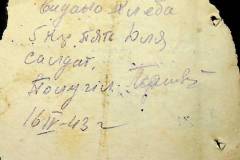 Выдано хлеба
5 кг пять для
салдат.
Получил
16/IV-43 г